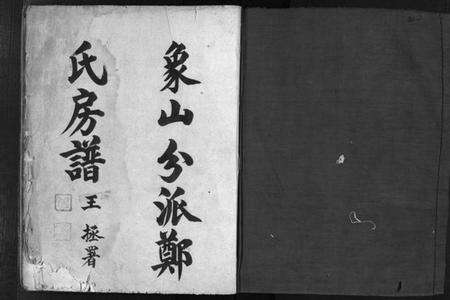 象山分派鄭
氏房譜
王拯署